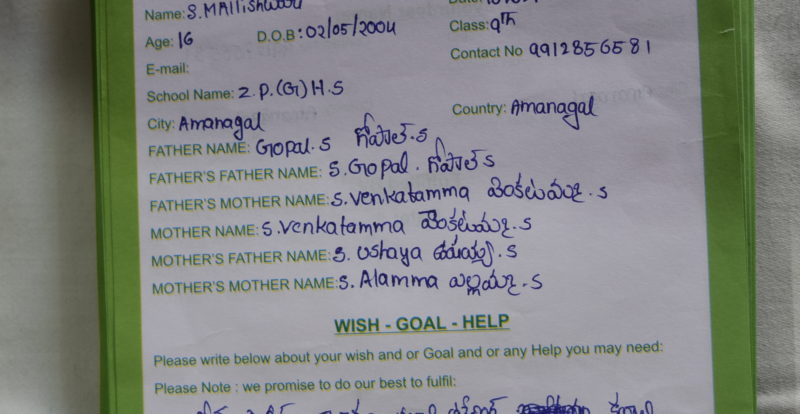 Name: S.
Age: 16 D.O.B: 02/05/2004 Class: 9th
E-mail: Contact No 9912856581
School Name: Z.P.(G) H.S
City: Amanagal Country: Amanagal
FATHER NAME: Gopal.S గోపాల్.S
FATHER'S FATHER NAME: S.Gopal. గోపాల్ S
FATHER'S MOTHER NAME: S.Venkatamma వెంకటమ్మ.S
MOTHER NAME: S.Venkatamma వెంకటమ్మ.S
MOTHER'S FATHER NAME: S. Ushaya S
MOTHER'S MOTHER NAME: S. Alamma S
WISH - GOAL - HELP
Please write below about your wish and or Goal and or any Help you may need:
Please Note : we promise to do our best to fulfil: